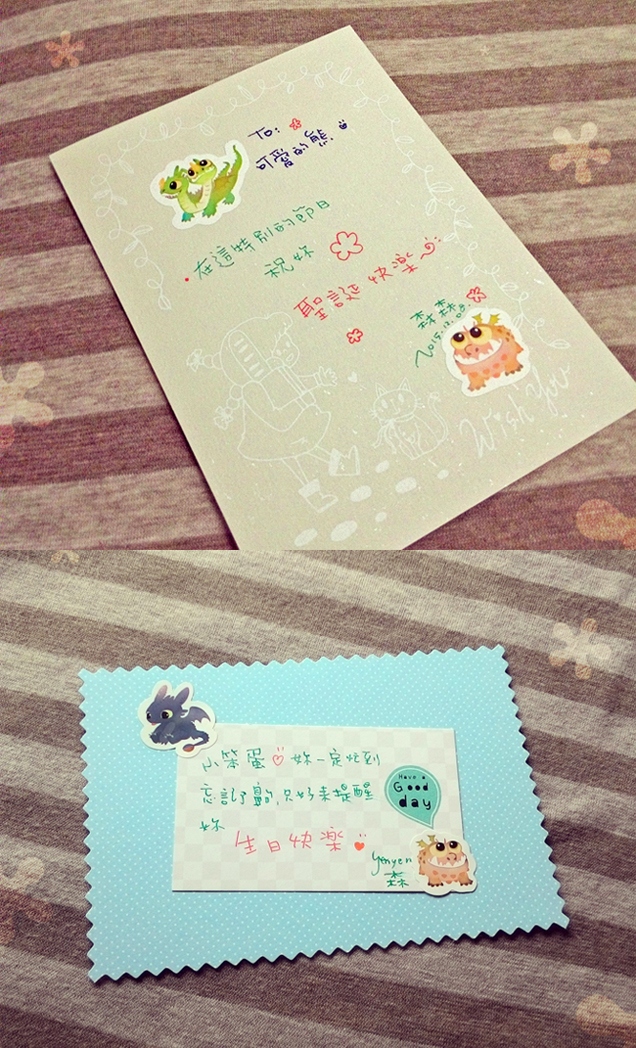 To:
可愛的熊
在這特別的節日
祝妳
聖誕快樂
森森
2015.12.08.
Wish You
小笨蛋 妳一定忙到
忘記了齁,只好來提醒
妳
生日快樂
Have a
Good
day
yenyen
森